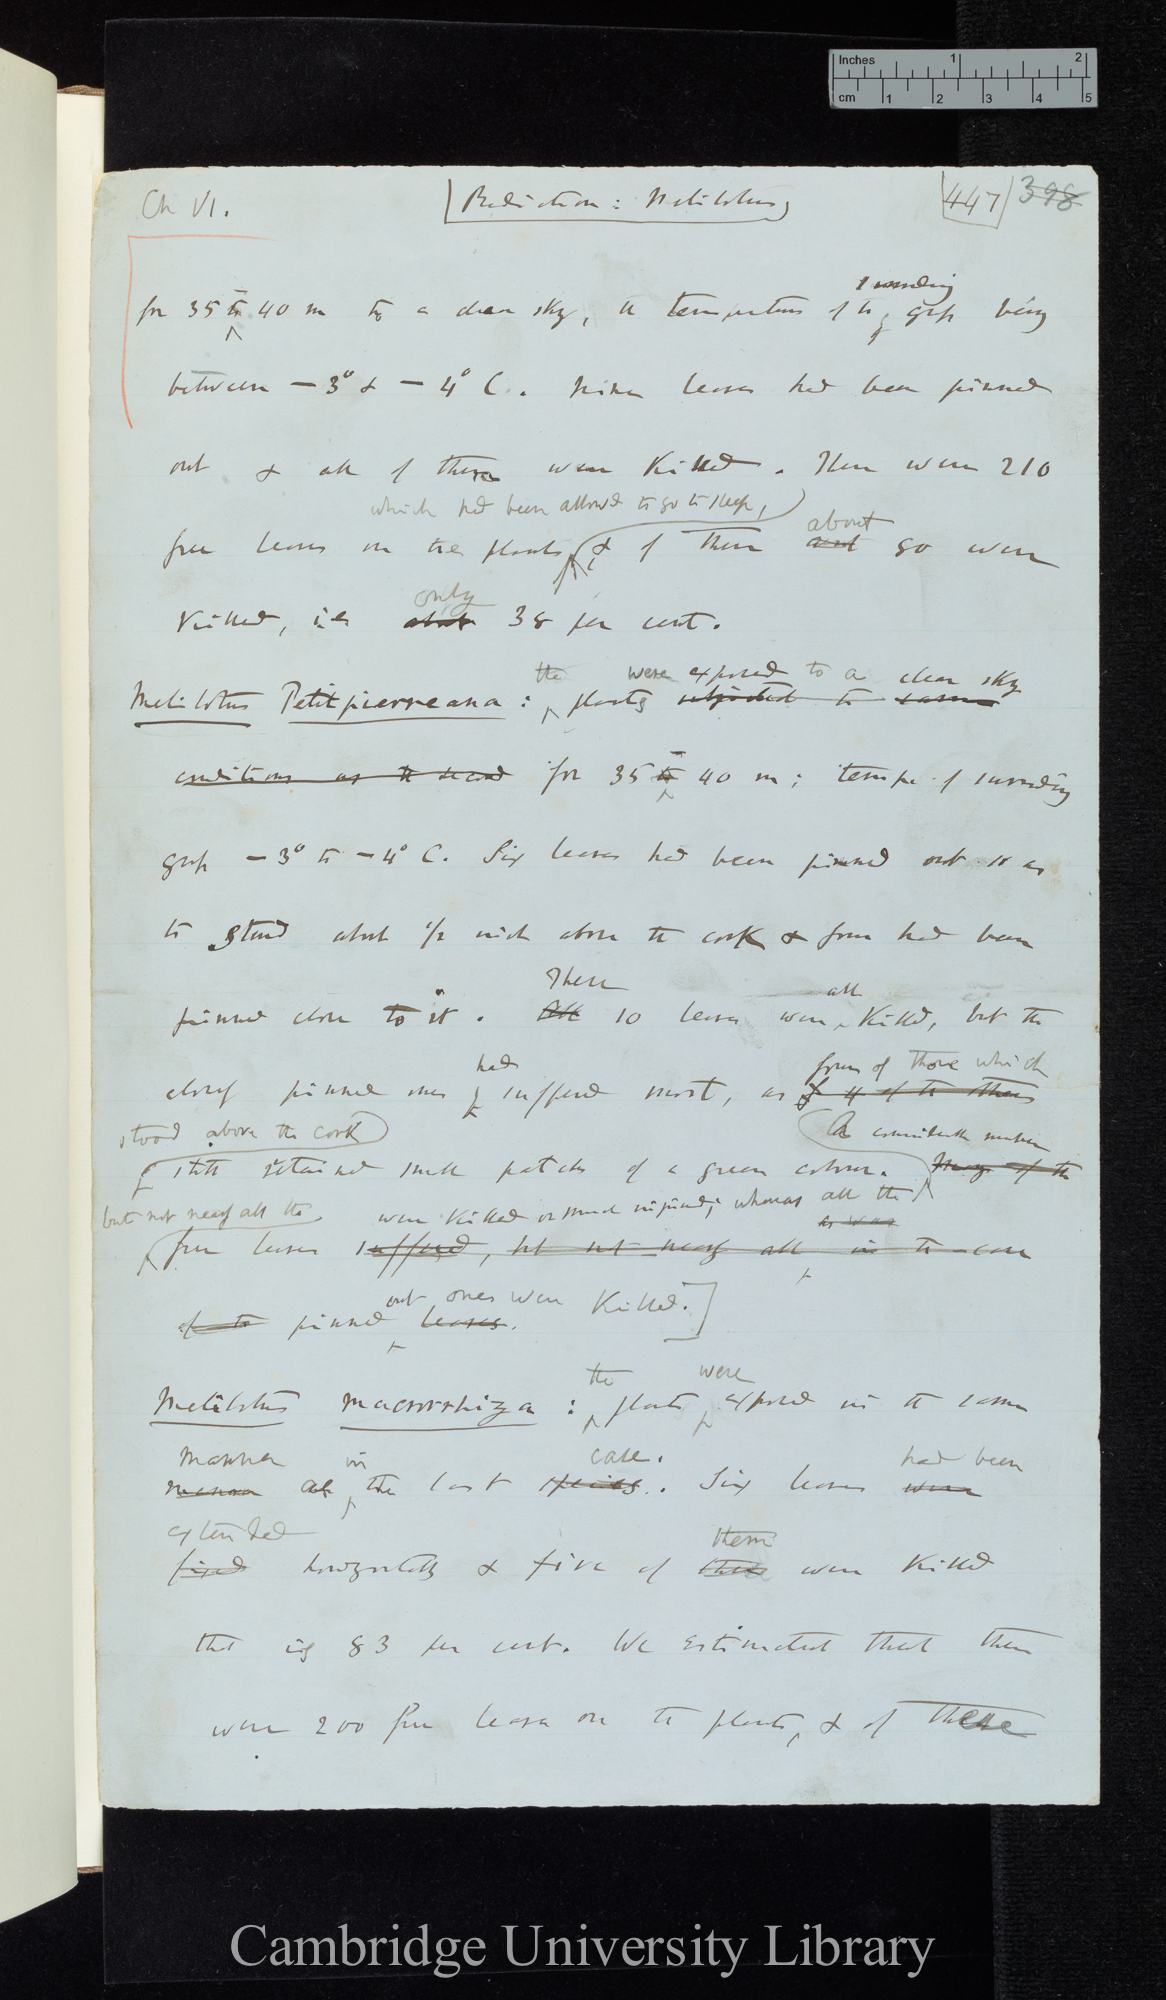 Inches 1 2
cm 1 2 3 4 5
Ch VI. Radiation: Melilotus 447 398
surrounding
for 35 to 40 m to a clear sky, the temperature of the grass being
between — 3° & — 4° C. leaves had been pinned
out & all of them were Killed. There were 210
which had been allowed to go to sleep,
free leaves on the plants, & of these about 80 were
only
Killed, ie about 38 per cent.
the were exposed to a clear sky
Melilotus Petitpierreana : plants subjected to same
conditions as the second for 35 to 40 m; temp. of surrounding
grass — 3° to — 4° C. Six leaves had been pinned out so as
to stand about 1/2 inch above the cork & four had been
These all
pinned close to it. All 10 leaves were Killed, but the
had four of those which
closely pinned ones suffered most, as of the others
stood above the cork A considerable number
still retained small patches of a green colour. Many of the
but not nearly all the were Killed or much injured; whereas all the
as was
free leaves suffered, but not nearly all, in the case
out ones were Killed.
of the pinned leaves.
the were
Melilotus macrorrhiza : plants exposed in the same
manner in case. had been
manner as the last species. Six leaves were
extended them
fixed horizontally & five of these were Killed
that is 83 per cent. We estimated that there
were 200 free leaves on the plants, & of these
Cambridge University Library